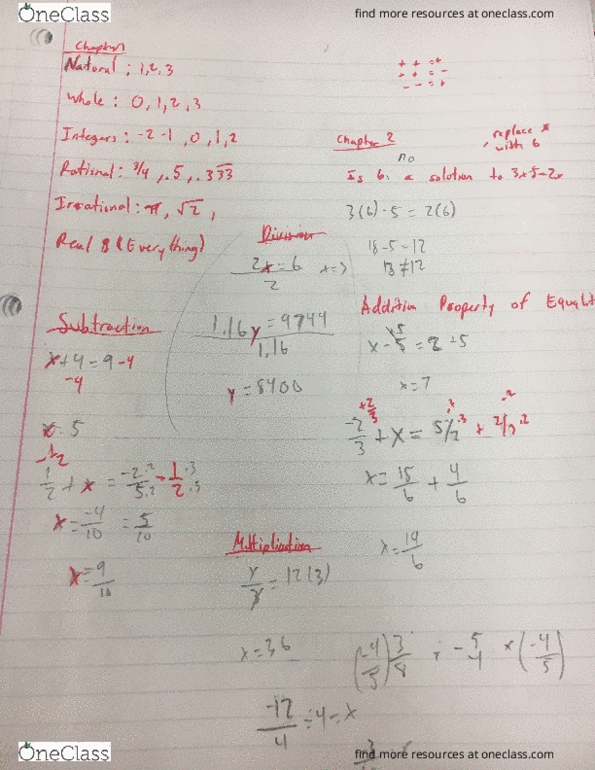 OneClass
find more resources at oneclass.com
Chapter 1
Natural: 1,2,3
Whole: 0,1,2,3
Integers: -2 -1, 0, 1, 2
Rational: 3/4, .5, .333
Irrational: π, √2,
Real (Everything)
+ + = +
+ + = -
- - = +
Chapter 2
replace x
with 6
no
Is 6 a solution to 3x-5=2x
3(6)-5=2(6)
18-5=12
13≠12
Division
2x=6
2
x=3
1.16y=9744
1.16
y=8400
Subtraction
x+4=9-4
-4
x=5
-1/2
1/2+x=-2·2/5·2-1·5/2·5
x=-4/10=5/10
x=9/10
Addition Property of Equalit
x-5=2+5
x=7
+2/3
-2/3+x=5/2·3+2/3·2
x=15/6+4/6
x=19/6
Multiplication
=12(3)
x=36
(-4/5)3/8÷-5/4×(-4/5)
-12/4÷4=x
OneClass
find more resources at oneclass.com